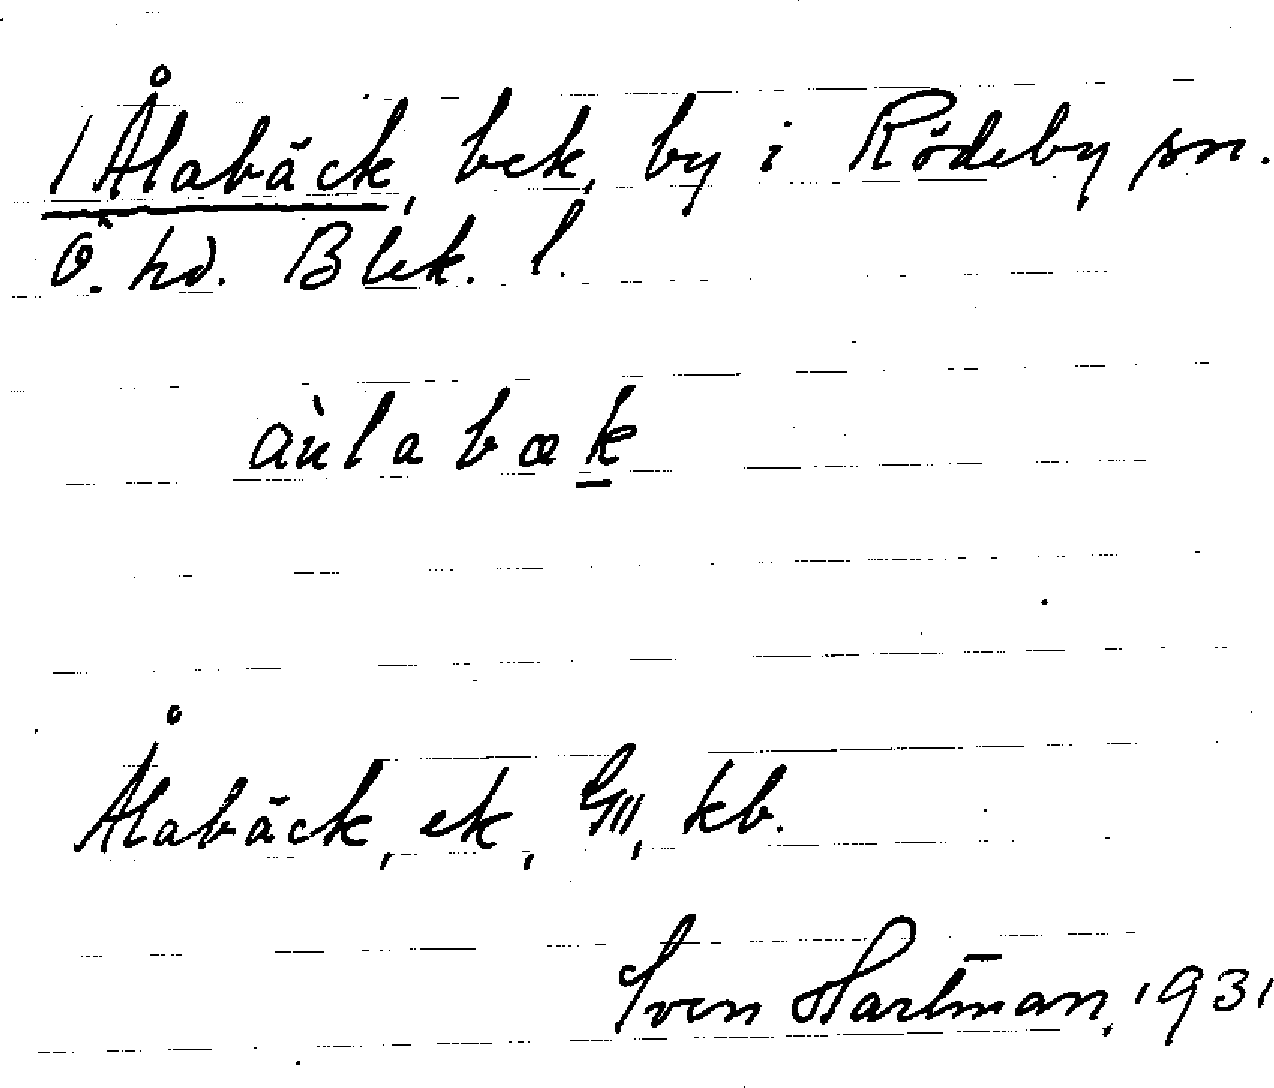 / Ålabäck, bek, by i Rödeby sn.
Ö. hd. Blek. l.
au̇̀labæk
Ålabäck, ek, GIII, kb.
Sven Hartman, 1931